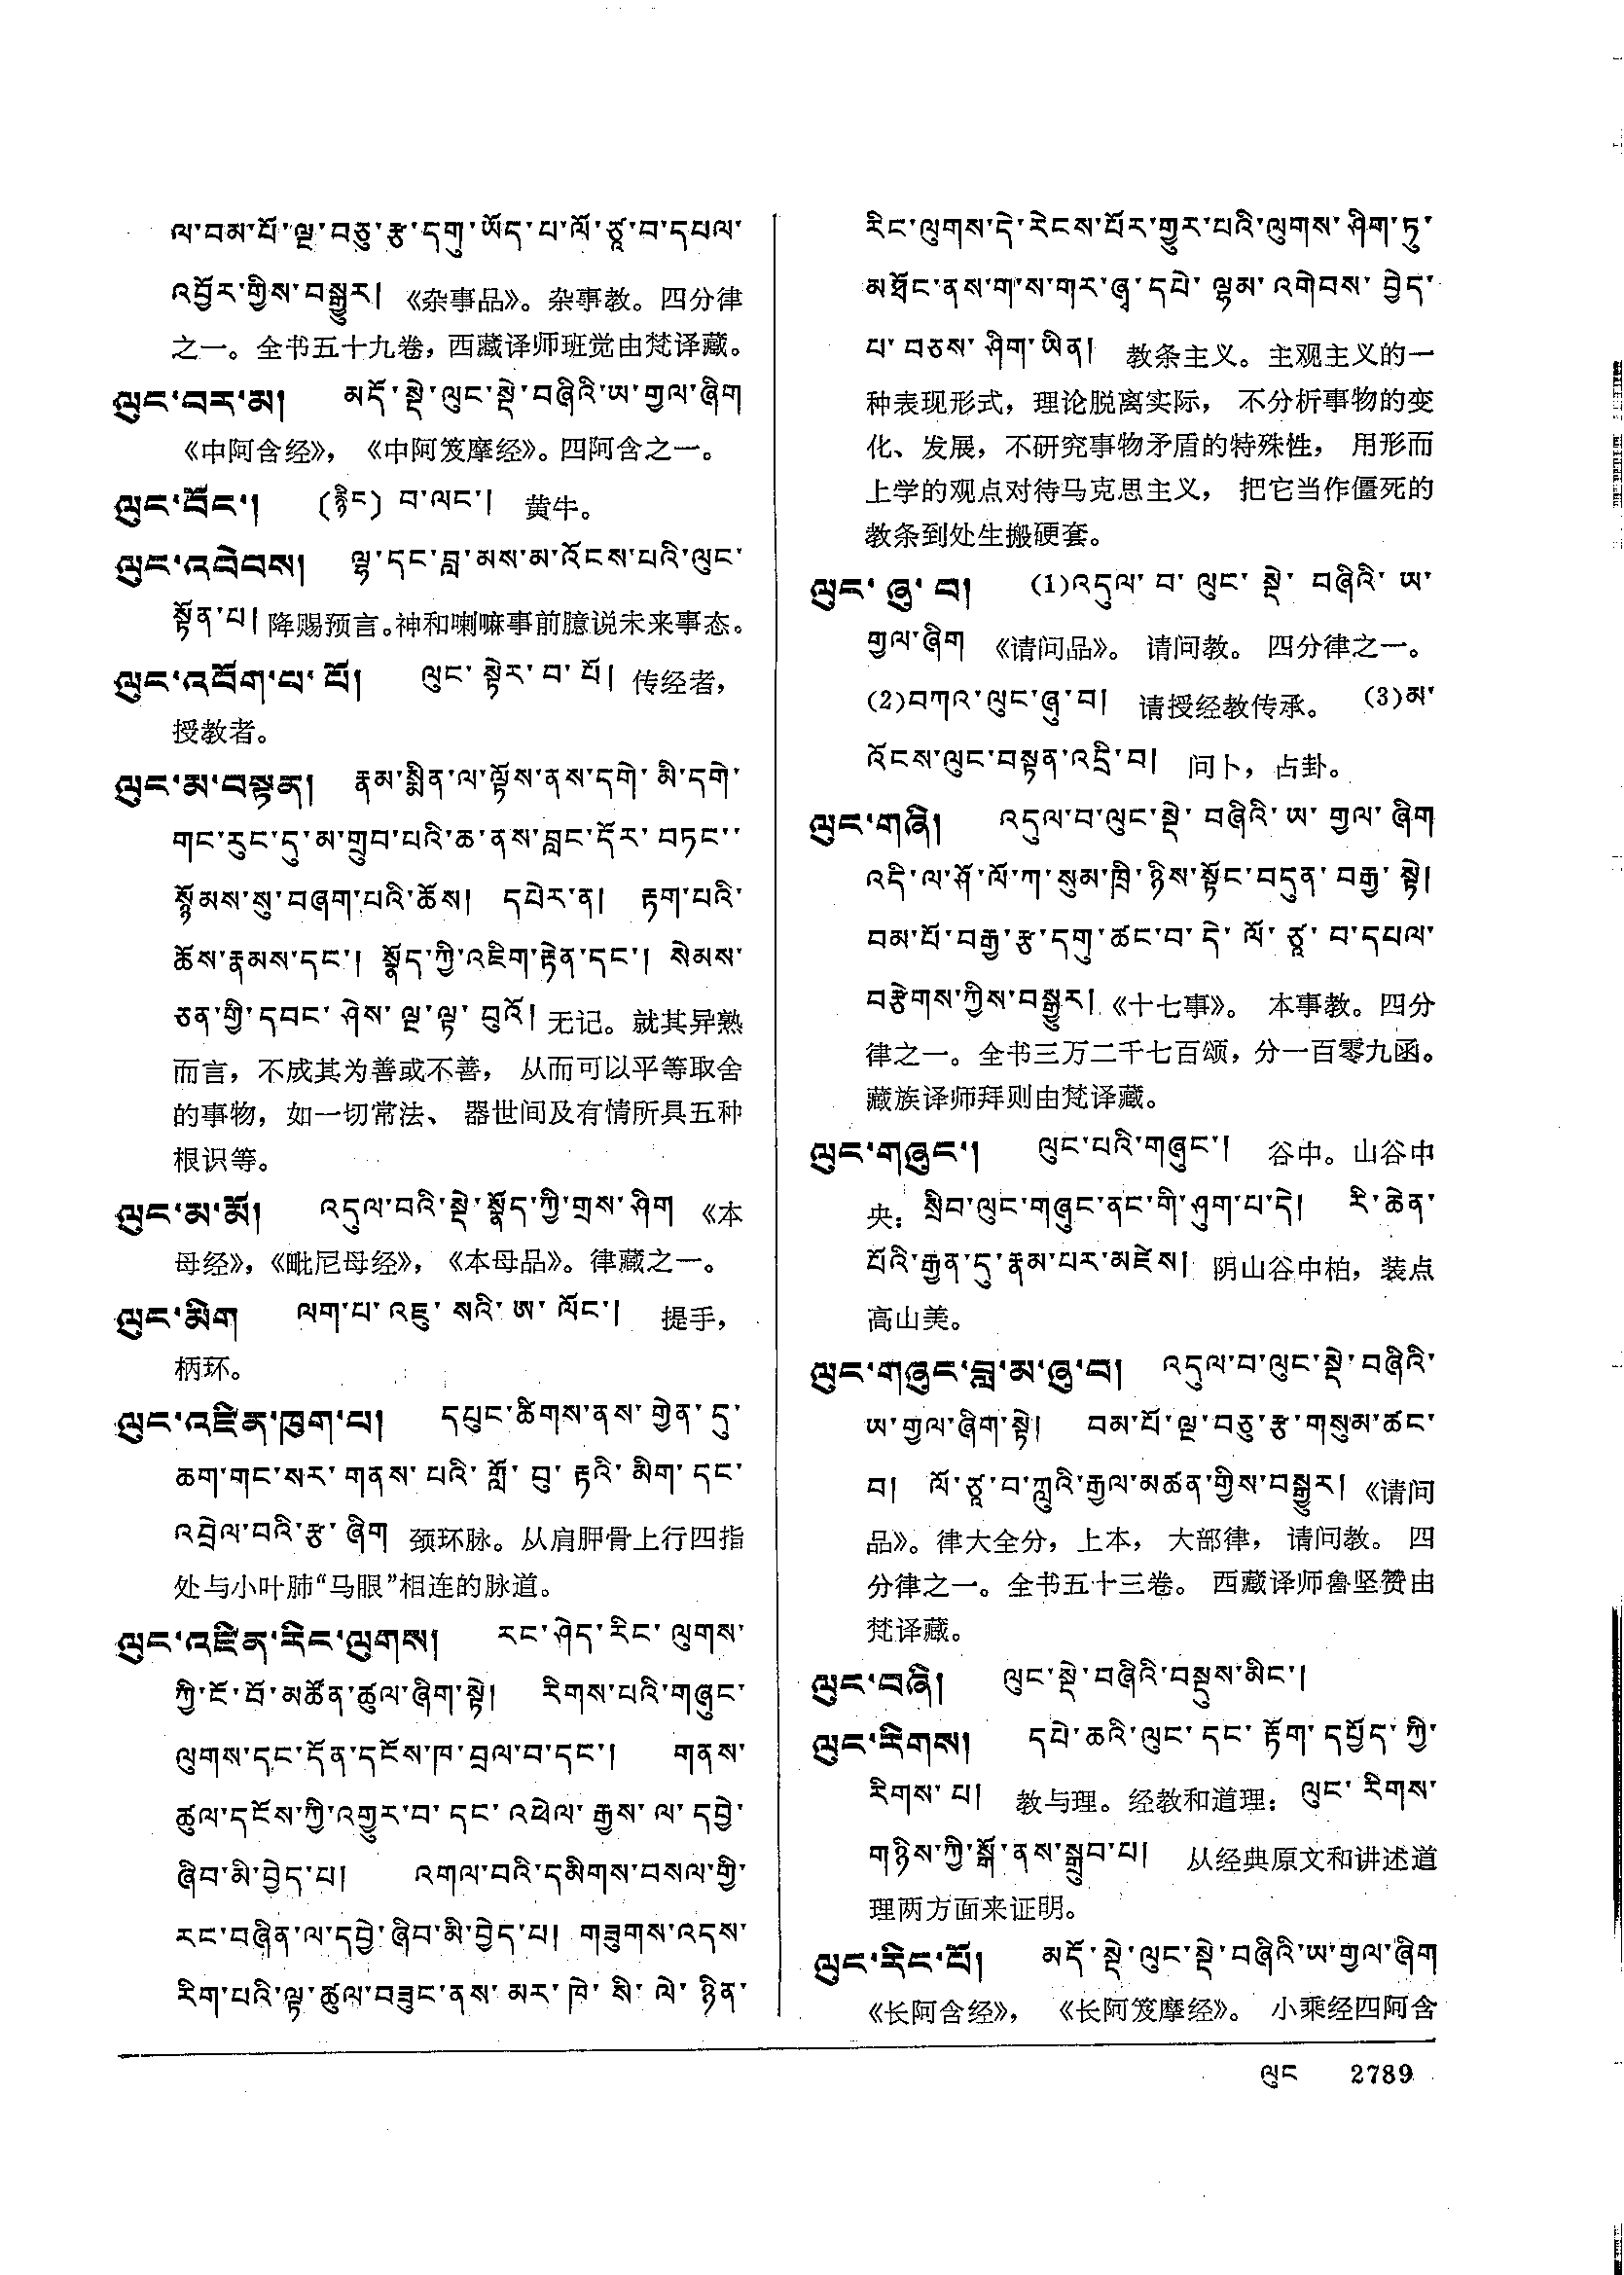 ལ་བམ་པོ་ལྔ་བཅུ་རྩ་དགུ་ཡོད་པ་ལོ་ཙཱ་བ་དཔལ་
འབྱོར་གྱིས་བསྒྱུར། 《杂事品》。杂事教。四分律
之一。全书五十九卷，西藏译师班觉由梵译藏。
ལུང་བར་མ། མདོ་སྡེ་ལུང་སྡེ་བཞིའི་ཨ་གྱལ་ཞིག
《中阿含经》，《中阿笈摩经》。四阿含之一。
ལུང་བོང་། (རྙིང) བ་ལང་། 黄牛。
ལུང་འབེབས། ལྷ་དང་བླ་མས་མ་འོངས་པའི་ལུང་
སྟོན་པ། 降赐预言。神和喇嘛事前臆说未来事态。
ལུང་འབོག་པ་པོ། ལུང་སྟེར་བ་པོ། 传经者，
授教者。
ལུང་མ་བསྟན། རྣམ་སྨིན་ལ་ལྟོས་ནས་དགེ་མི་དགེ་
གང་རུང་དུ་མ་གྲུབ་པའི་ཆ་ནས་བླང་དོར་བཏང་་
སྙོམས་སུ་བཞག་པའི་ཆོས། དཔེར་ན། རྟག་པའི་
ཆོས་རྣམས་དང་། སྣོད་ཀྱི་འཇིག་རྟེན་དང་། སེམས་
ཅན་གྱི་དབང་ཤེས་ལྔ་ལྟ་བུའོ། 无记。就其异熟
而言，不成其为善或不善， 从而可以平等取舍
的事物，如一切常法、 器世间及有情所具五种
根识等。
ལུང་མ་མོ། འདུལ་བའི་སྡེ་སྣོད་ཀྱི་གྲས་ཤིག 《本
母经》，《毗尼母经》，《本母品》。律藏之一。
ལུང་མིག ལག་པ་འཇུ་སའི་ཨ་ལོང་། 提手，
柄环。
ལུང་འཛིན་ཁུག་པ། དཔུང་ཚིགས་ནས་གྱེན་དུ་
ཆག་གང་སར་གནས་པའི་གློ་བུ་རྟའི་མིག་དང་
འབྲེལ་བའི་རྩ་ཞིག 颈环脉。从肩胛骨上行四指
处与小叶肺“马眼”相连的脉道。
ལུང་འཛིན་རིང་ལུགས། རང་ཤེད་རིང་ལུགས་
ཀྱི་ངོ་བོ་མཚོན་ཚུལ་ཞིག་སྟེ། རིགས་པའི་གཞུང་
ལུགས་དང་དོན་དངོས་ཁ་བྲལ་བ་དང་། གནས་
ཚུལ་དངོས་ཀྱི་འགྱུར་བ་དང་འཕེལ་རྒྱས་ལ་དབྱེ་
ཞིབ་མི་བྱེད་པ། འགལ་བའི་དམིགས་བསལ་གྱི་
རང་བཞིན་ལ་དབྱེ་ཞིབ་མི་བྱེད་པ། གཟུགས་འདས་
རིག་པའི་ལྟ་ཚུལ་བཟུང་ནས་མར་ཁེ་སི་ལེ་ཉིན་
རིང་ལུགས་དེ་རེངས་པོར་གྱུར་པའི་ལུགས་ཤིག་ཏུ་
མཐོང་ནས་ག་ས་གར་ཞྭ་དཔེ་ལྷམ་འགེབས་བྱེད་
པ་བཅས་ཤིག་ཡིན། 教条主义。主观主义的一
种表现形式，理论脱离实际， 不分析事物的变
化、发展，不研究事物矛盾的特殊性， 用形而
上学的观点对待马克思主义， 把它当作僵死的
教条到处生搬硬套。
ལུང་ཞུ་བ། (1)འདུལ་བ་ལུང་སྡེ་བཞིའི་ཨ་
གྱལ་ཞིག 《请问品》。 请问教。 四分律之一。
(2)བཀའ་ལུང་ཞུ་བ། 请授经教传承。 (3)མ་
འོངས་ལུང་བསྟན་འདྲི་བ། 问卜，占卦。
ལུང་གཞི། འདུལ་བ་ལུང་སྡེ་བཞིའི་ཨ་གྱལ་ཞིག
འདི་ལ་ཤོ་ལོ་ཀ་སུམ་ཁྲི་ཉིས་སྟོང་བདུན་བརྒྱ་སྟེ།
བམ་པོ་བརྒྱ་རྩ་དགུ་ཚང་བ་དེ་ལོ་ཙཱ་བ་དཔལ་
བརྩེགས་ཀྱིས་བསྒྱུར། 《十七事》。 本事教。四分
律之一。全书三万二千七百颂，分一百零九函。
藏族译师拜则由梵译藏。
ལུང་གཞུང་། ལུང་པའི་གཞུང་། 谷中。山谷中
央： སྲིབ་ལུང་གཞུང་ནང་གི་ཤུག་པ་དེ། རི་ཆེན་
པོའི་རྒྱན་དུ་རྣམ་པར་མཛེས། 阴山谷中柏，装点
高山美。
ལུང་གཞུང་བླ་མ་ཞུ་བ། འདུལ་བ་ལུང་སྡེ་བཞིའི་
ཨ་གྱལ་ཞིག་སྟེ། བམ་པོ་ལྔ་བཅུ་རྩ་གསུམ་ཚང་
བ། ལོ་ཙཱ་བ་ཀླུའི་རྒྱལ་མཚན་གྱིས་བསྒྱུར། 《请问
品》。律大全分，上本， 大部律， 请问教。 四
分律之一。全书五十三卷。 西藏译师鲁坚赞由
梵译藏。
ལུང་བཞི། ལུང་སྡེ་བཞིའི་བསྡུས་མིང་།
ལུང་རིགས། དཔེ་ཆའི་ལུང་དང་རྟོག་དཔྱོད་ཀྱི་
རིགས་པ། 教与理。经教和道理： ལུང་རིགས་
གཉིས་ཀྱི་སྒོ་ནས་སྒྲུབ་པ། 从经典原文和讲述道
理两方面来证明。
ལུང་རིང་པོ། མདོ་སྡེ་ལུང་སྡེ་བཞིའི་ཨ་གྱལ་ཞིག
《长阿含经》， 《长阿笈摩经》。 小乘经四阿含
ལུང 2789